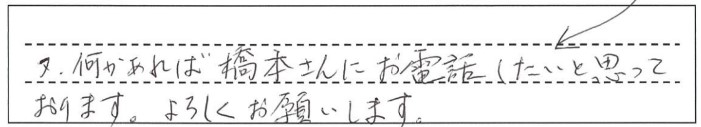 又、何かあれば橋本さんにお電話したいと思って
おります。よろしくお願いします。